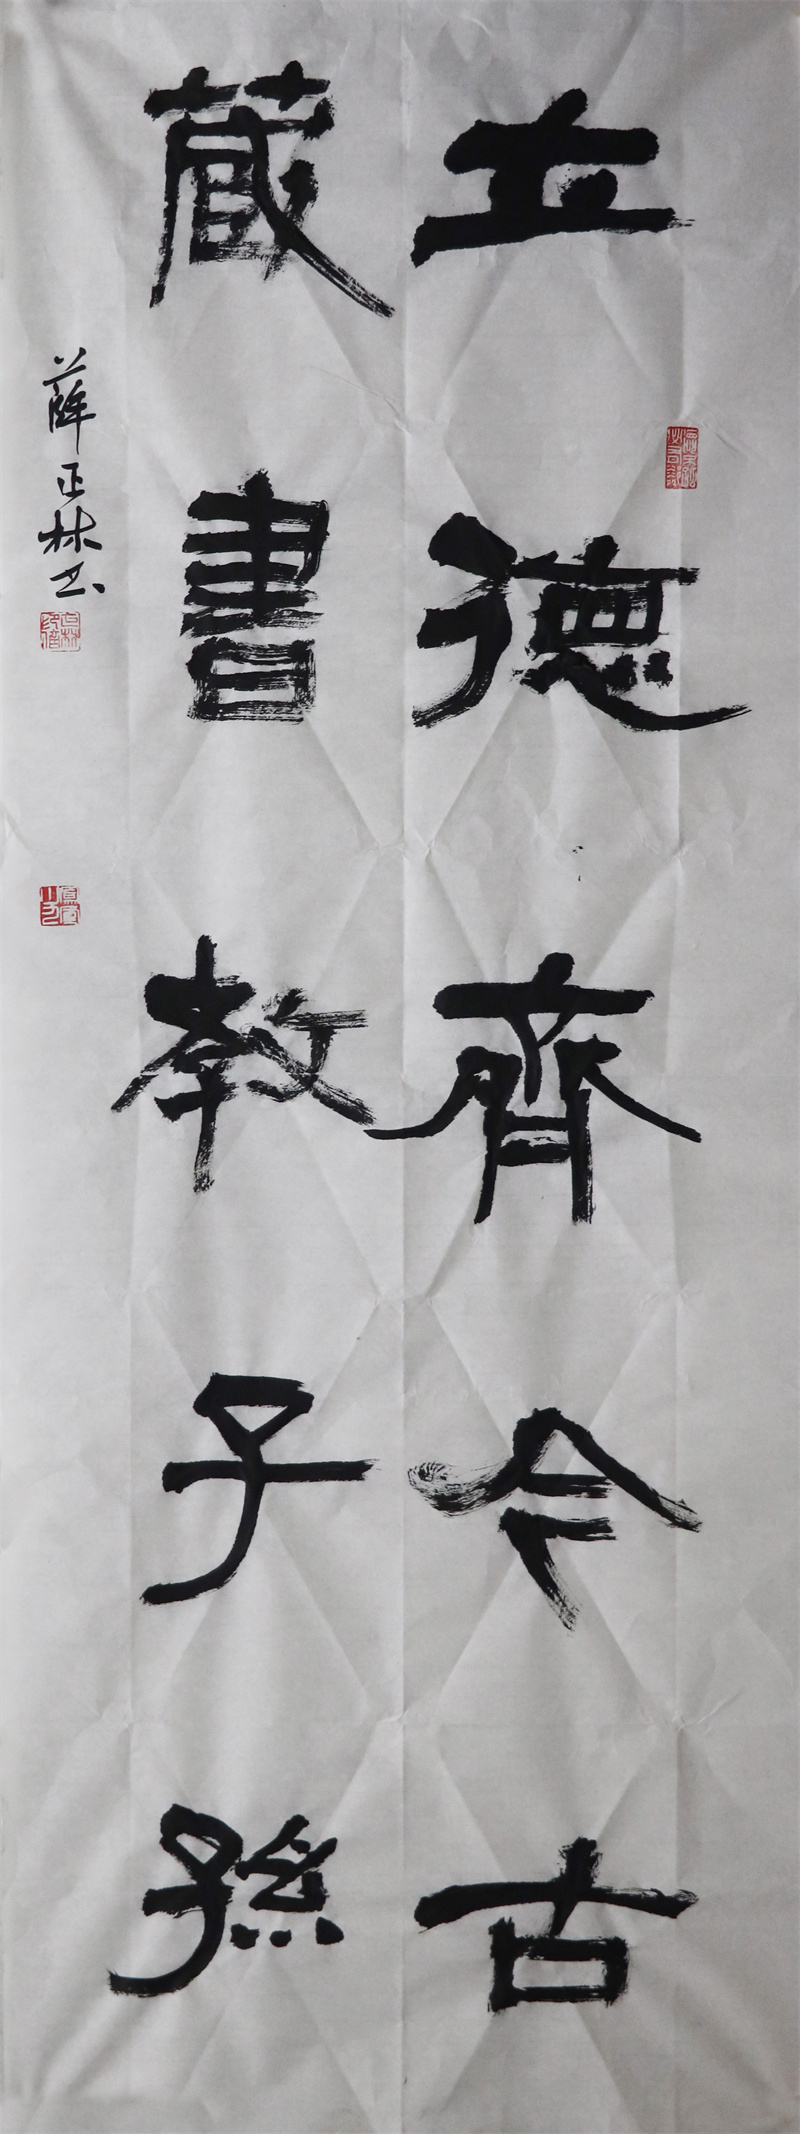 立德齊今古
藏書教子孫
薛正林书